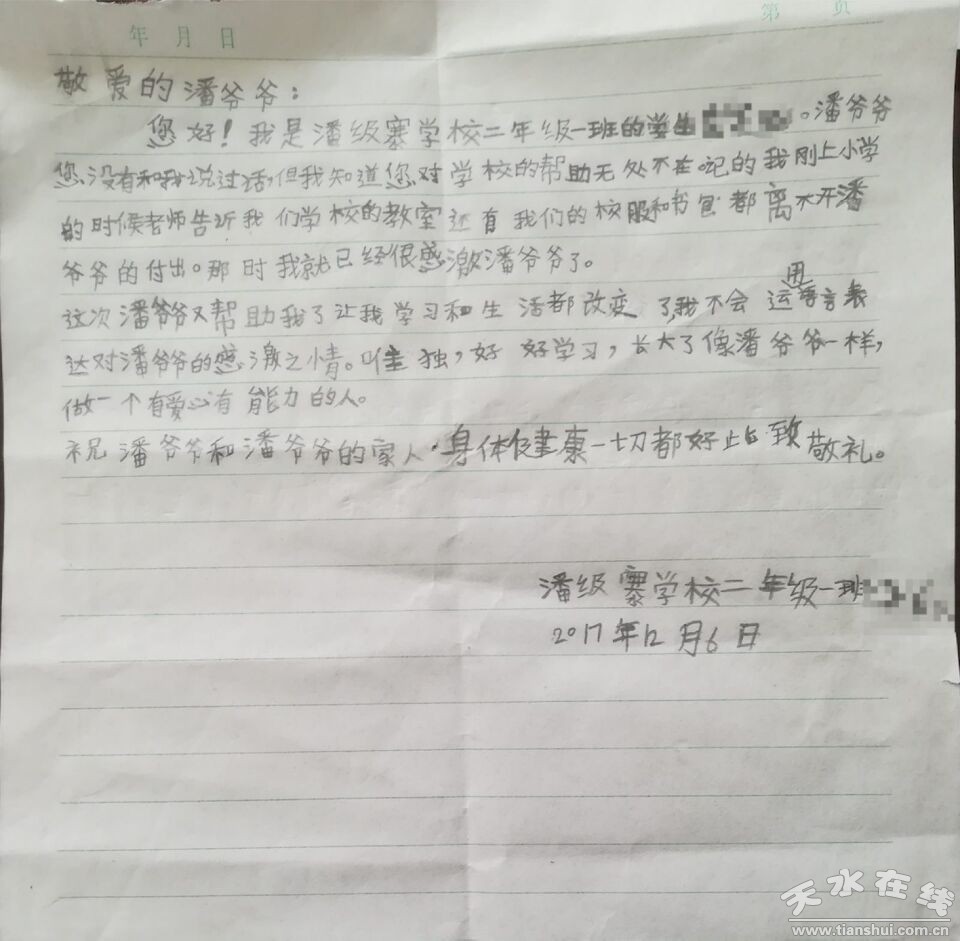 年 月 日
第 页
敬爱的潘爷爷：
您好！我是潘级寨学校二年级一班的学生。潘爷爷
您没有和我说过话，但我知道您对学校的帮助无处不在。记的我刚上小学
的时候老师告诉我们学校的教室还有我们的校服和书包都离不开潘
爷爷的付出。那时我就已经很感激潘爷爷了。
这次潘爷爷又帮助我了让我学习和生活都改变了我不会运用语言表
达对潘爷爷的感激之情。唯独，好好学习，长大了像潘爷爷一样，
做一个有爱心有能力的人。
祝潘爷爷和潘爷爷的家人·身体健康一切都好此致敬礼。
潘级寨学校二年级一班
2017年12月6日
天水在线
www.tianshui.com.cn